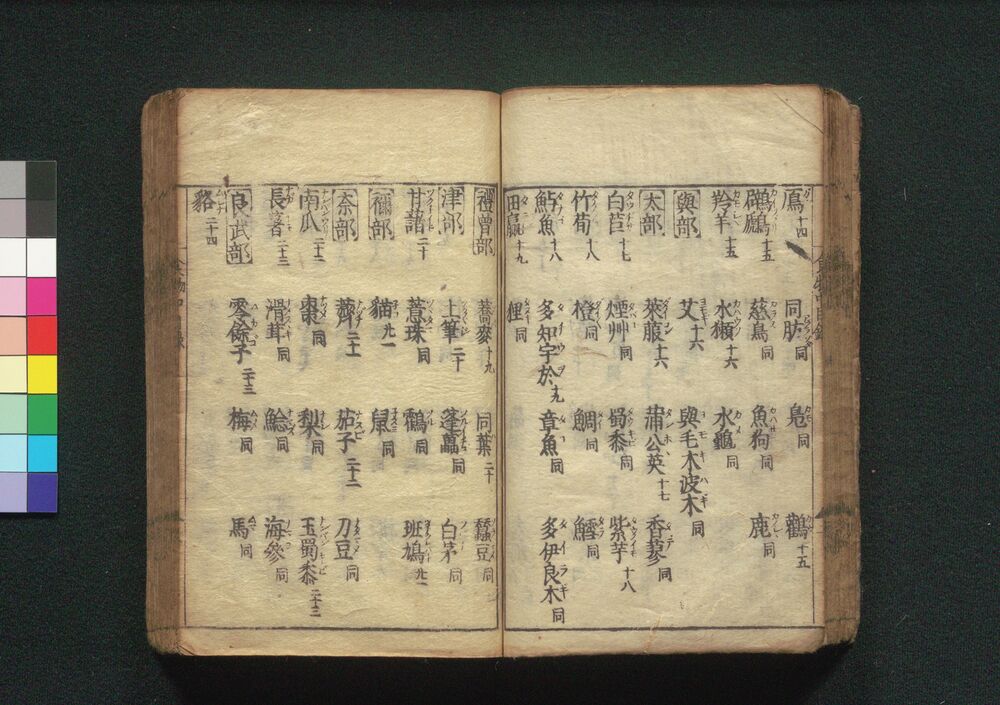 鴈 十四 同肪 同 鳬 同 鸛 十五
鸊鷉 十五 慈鳥 同 魚狗 同 鹿 同
羚羊 十五 水獺 十六 水龜 同
與部 艾 十六 與毛木波木 同
太部 萊菔 十六 蒲公英 十七 香蓼 同
白苣 十七 煙艸 同 蜀黍 同 紫芋 十八
竹筍 十八 橙 同 鯛 同 鱈 同
鮎魚 十八 多知宇於 十九 章魚 同 多伊良木 同
田蠃 十九 狸 同
禮曾部 蕎麥 十九 同葉 二十 蠶豆 同
津部 土筆 二十 蓬虆 同 白茅 同
甘藷 二十 薏珠 同 鶴 同 斑鳩 廿一
禰部 貓 廿一 鼠 同
奈部 薺 二十一 茄子 二十二 刀豆 同
南瓜 二十二 棗 同 梨 同 玉蜀黍 二十三
長喜 二十三 滑茸 同 鯰 同 海參 同
良武部 零餘子 二十三 梅 同 馬 同
貉 二十四